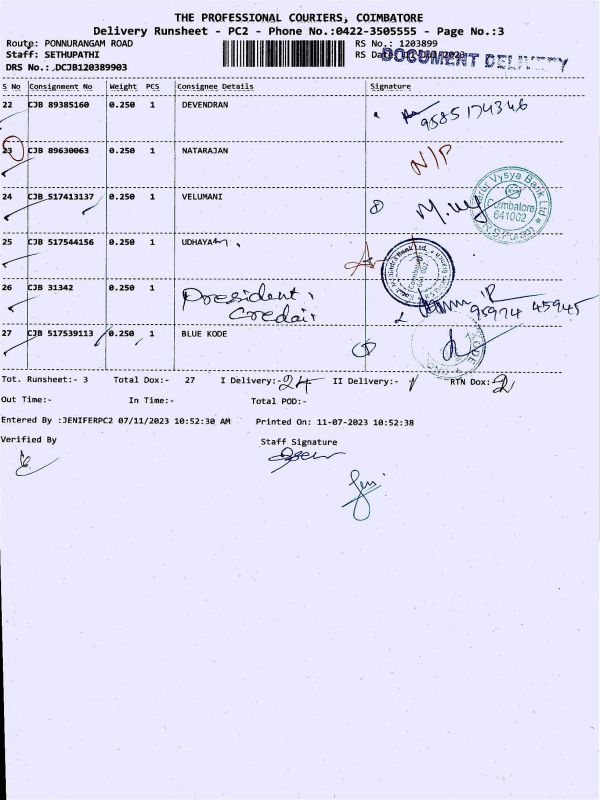 THE PROFESSIONAL COURIERS, COIMBATORE
Delivery Runsheet - PC2 - Phone No.:0422-3505555 - Page No.:3
Route: PONNURANGAM ROAD RS No.: 1203899
Staff: SETHUPATHI RS Date:
DOCUMENT DELIVERY
DRS No.: DCJB120389903
S No Consignment No Weight PCS Consignee Details Signature
22 CJB 89385160 0.250 1 DEVENDRAN
9585174346
23 CJB 89630063 0.250 1 NATARAJAN N/P
24 CJB 517413137 0.250 1 VELUMANI
Vysya Bank Ltd
Coimbatore
641002
25 CJB 517544156 0.250 1 UDHAYAM
26 CJB 31342 0.250 1 President,
Credai,
95974 45945
27 CJB 517539113 0.250 1 BLUE KODE
Tot. Runsheet:- 3 Total Dox:- 27 I Delivery:- 24 II Delivery:- 1 RTN Dox:- 2
Out Time:- In Time:- Total POD:-
Entered By :JENIFERPC2 07/11/2023 10:52:30 AM Printed On: 11-07-2023 10:52:38
Verified By Staff Signature